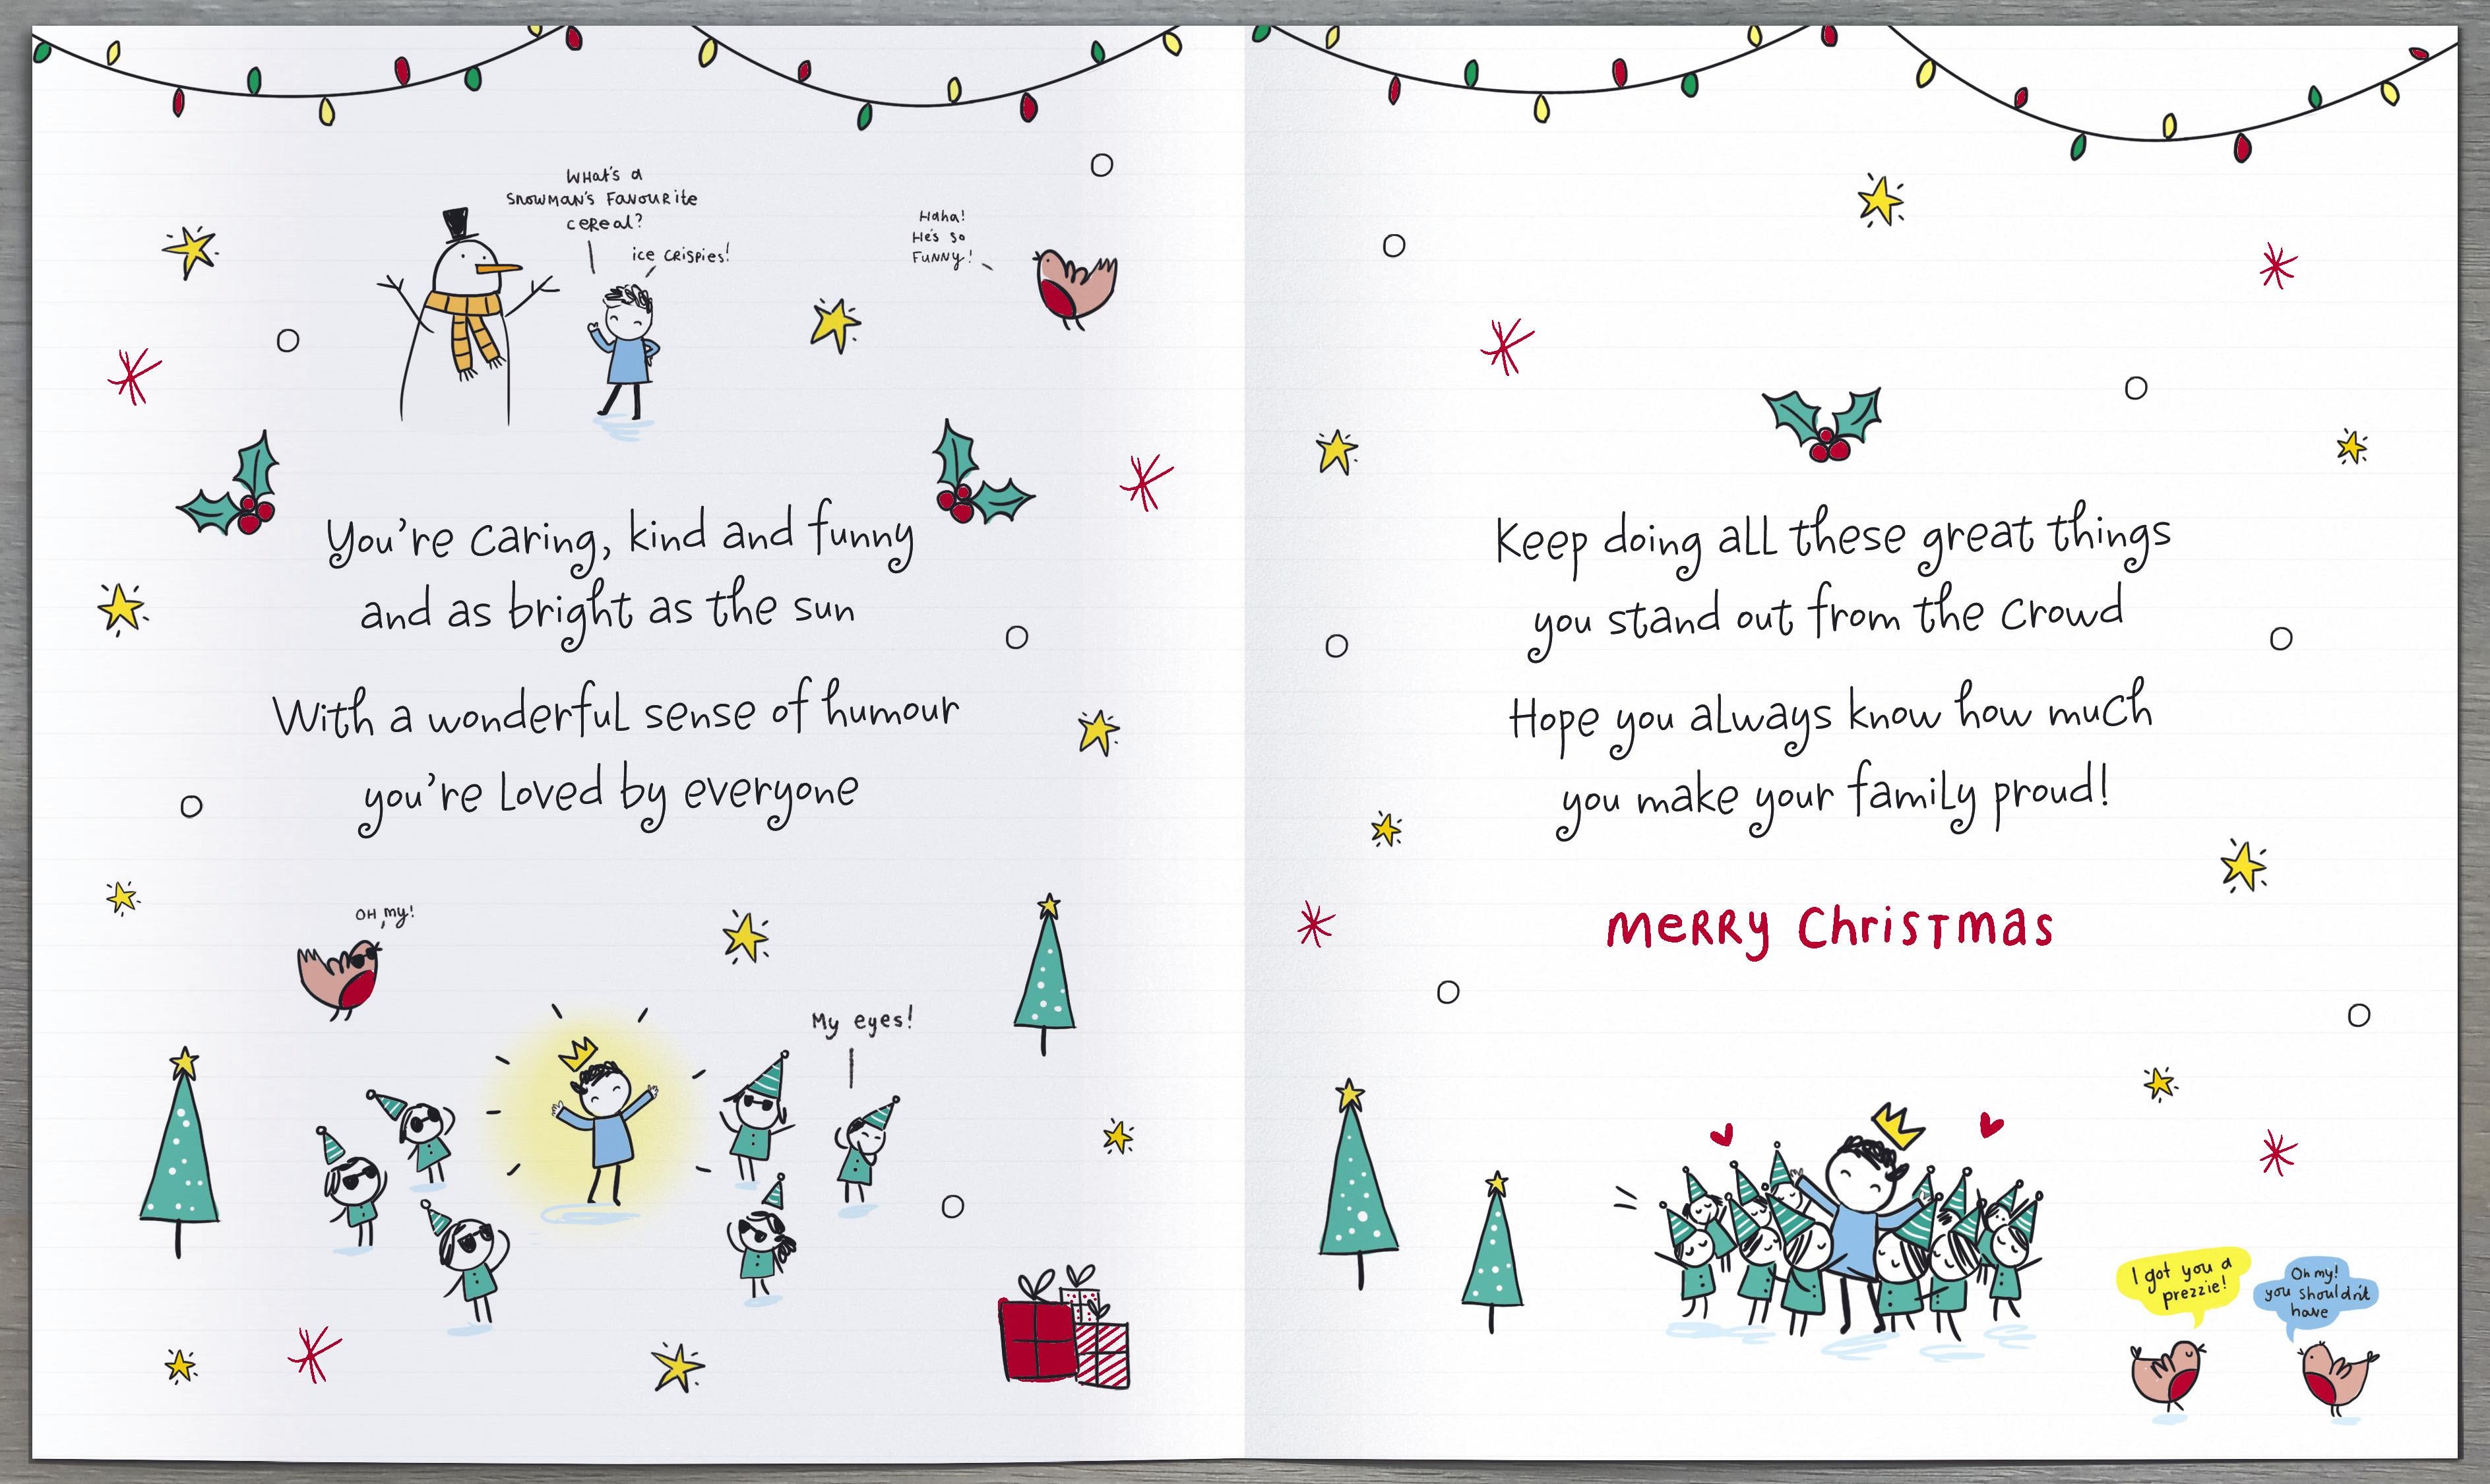 What's a
Snowman's Favourite
cereal?
ice crispies!
Haha!
He's so
Funny!
You're caring, kind and funny
and as bright as the sun
With a wonderful sense of humour
you're loved by everyone
OH my!
My eyes!
Keep doing all these great things
you stand out from the crowd
Hope you always know how much
you make your family proud!
Merry Christmas
I got you a
prezzie!
Oh my!
you shouldn't
have